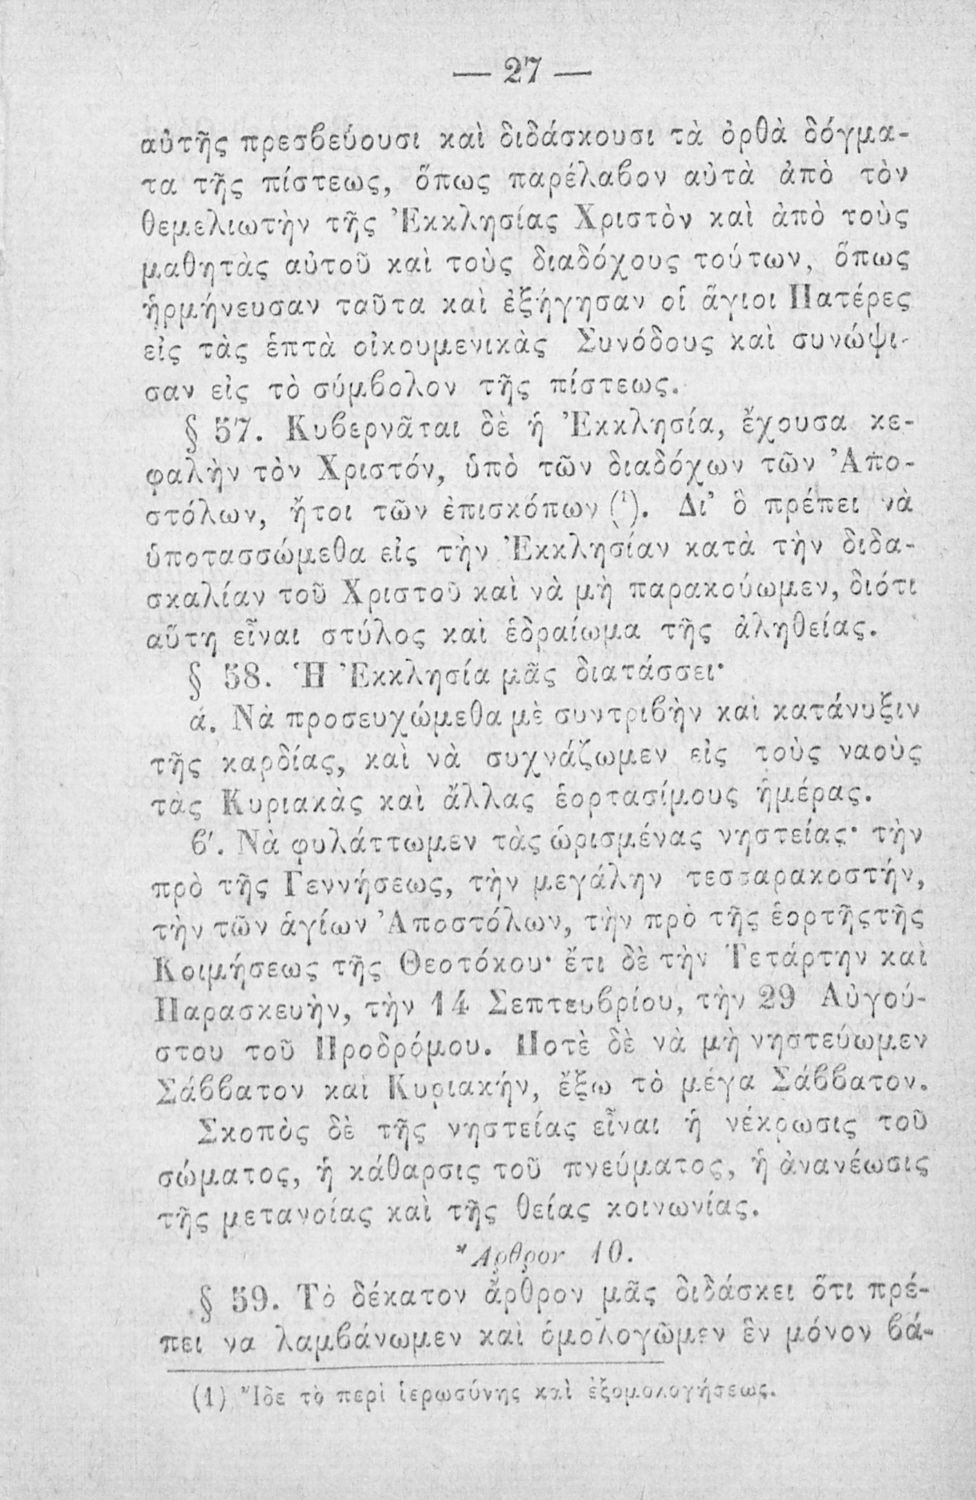 — 27 —
αὐτῆς πρεσβεύουσι καὶ διδάσκουσι τὰ ὀρθὰ δόγμα-
τα τῆς πίστεως, ὅπως παρέλαβον αὐτὰ ἀπὸ τὸν
θεμελιωτὴν τῆς Ἐκκλησίας Χριστὸν καὶ ἀπὸ τοὺς
μαθητὰς αὐτοῦ καὶ τοὺς διαδόχους τούτων, ὅπως
ἡρμήνευσαν ταῦτα καὶ ἐξήγησαν οἱ ἅγιοι Πατέρες
εἰς τὰς ἑπτὰ οἰκουμενικὰς Συνόδους καὶ συνώψι-
σαν εἰς τὸ σύμβολον τῆς πίστεως.
§ 57. Κυβερνᾶται δὲ ἡ Ἐκκλησία, ἔχουσα κε-
φαλὴν τὸν Χριστόν, ὑπὸ τῶν διαδόχων τῶν Ἀπο-
στόλων, ἤτοι τῶν ἐπισκόπων (¹). Δι' ὃ πρέπει νὰ
ὑποτασσώμεθα εἰς τὴν Ἐκκλησίαν κατὰ τὴν διδα-
σκαλίαν τοῦ Χριστοῦ καὶ νὰ μὴ παρακούωμεν, διότι
αὕτη εἶναι στύλος καὶ ἑδραίωμα τῆς ἀληθείας.
§ 58. Ἡ Ἐκκλησία μᾶς διατάσσει·
ά. Νὰ προσευχώμεθα μὲ συντριβὴν καὶ κατάνυξιν
τῆς καρδίας, καὶ νὰ συχνάζωμεν εἰς τοὺς ναοὺς
τὰς Κυριακὰς καὶ ἄλλας ἑορτασίμους ἡμέρας.
β'. Νὰ φυλάττωμεν τὰς ὡρισμένας νηστείας· τὴν
πρὸ τῆς Γεννήσεως, τὴν μεγάλην τεσσαρακοστήν,
τὴν τῶν ἁγίων Ἀποστόλων, τὴν πρὸ τῆς ἑορτῆςτῆς
Κοιμήσεως τῆς Θεοτόκου· ἔτι δὲ τὴν Τετάρτην καὶ
Παρασκευὴν, τὴν 14 Σεπτεμβρίου, τὴν 29 Αὐγού-
στου τοῦ Προδρόμου. Ποτὲ δὲ νὰ μὴ νηστεύωμεν
Σάββατον καὶ Κυριακήν, ἔξω τὸ μέγα Σάββατον.
Σκοπὸς δὲ τῆς νηστείας εἶναι ἡ νέκρωσις τοῦ
σώματος, ἡ κάθαρσις τοῦ πνεύματος, ἡ ἀνανέωσις
τῆς μετανοίας καὶ τῆς θείας κοινωνίας.
Ἄρθρον 10.
§ 59. Τὸ δέκατον ἄρθρον μᾶς διδάσκει ὅτι πρέ-
πει να λαμβάνωμεν καὶ ὁμολογῶμεν ἓν μόνον βά-
(1) Ἴδε τὸ περὶ ἱερωσύνης καὶ ἐξομολογήσεως.